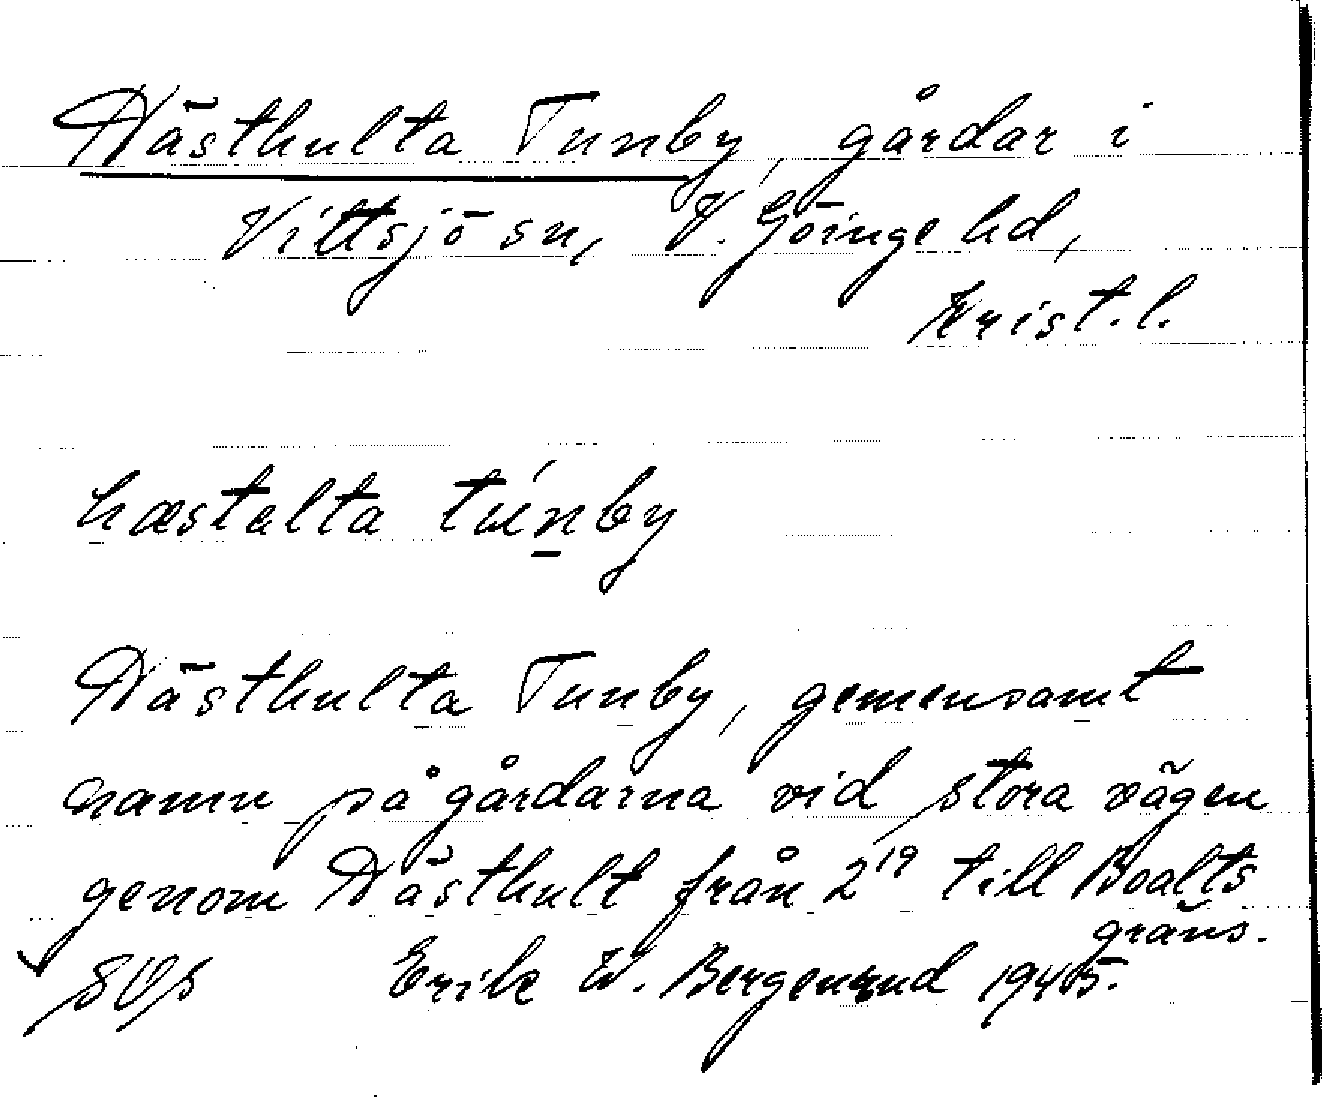 Hästhulta Tunby, gårdar i
Vittsjö sn, V. Göinge hd,
Krist. l.
hæstalta túnby
Hästhulta Tunby, gemensamt
namn på gårdarna vid stora vägen
genom Hästhult från 2¹⁹ till Boalts
gräns.
SOS Erik W. Bergenrud 1945.